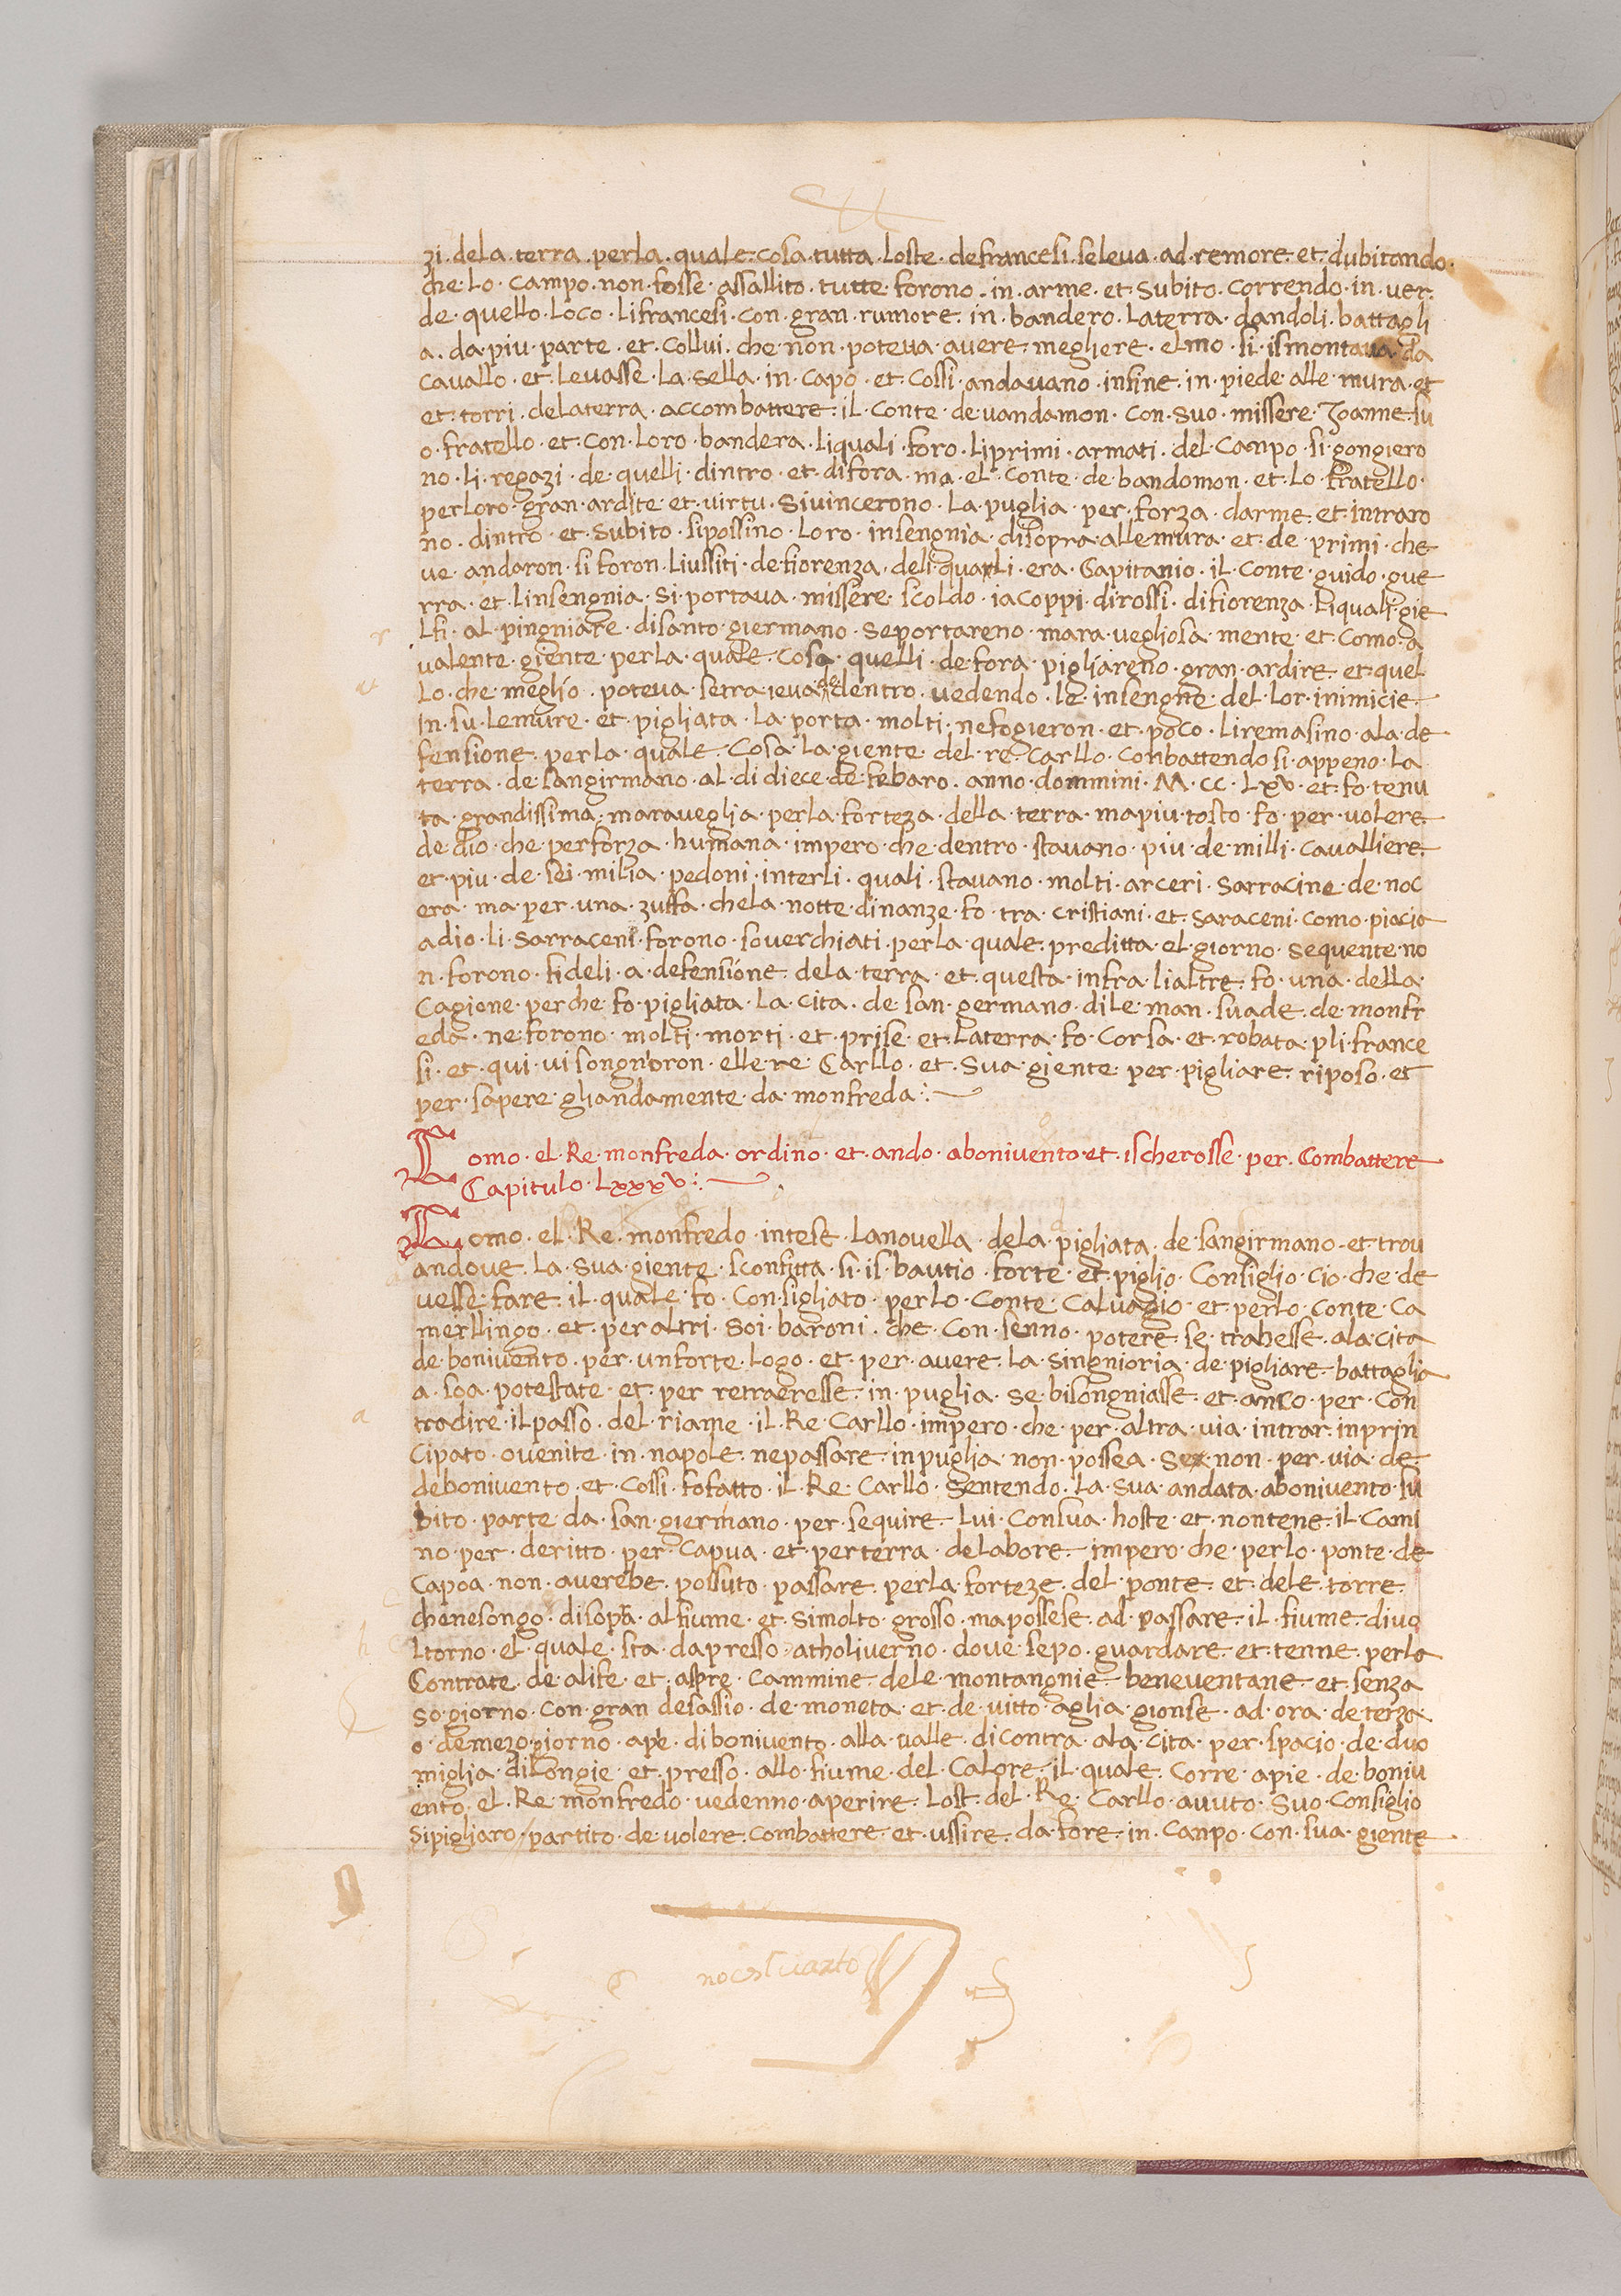 zi. dela. terra. perla. quale. cosa. tutta. loste. defrancesi. seleva. ad. remore. et. dubitando.
che. lo. campo. non. fosse. assallito. tutte. forono. in. arme. et. subito. correndo. in. ver.
de. quello. loco. lifrancesi. con. gran. rumore. in. bandero. laterra. dandoli. battagli
a. da. piu. parte. et. collui. che. non. poteva. avere. megliere. elmo. si. ismontava. da
cavallo. et. levasse. la. sella. in. capo. et. cossi. andavano. infine. in. piede. alle. mura. et
et. torri. delaterra. accombattere. il. conte. de. vandamon. con. suo. missere. Joanne. su
o. fratello. et. con. loro. bandera. liquali. foro. liprimi. armati. del. canpo. si. gongiero
no. li. regazi. de. quelli. dintro. et. difora. ma. el. conte. de. bandomon. et. lo. fratello.
perloro. gran. ardite. et. virtu. sivincerono. la. puglia. per. forza. darme. et. intraro
no. dintro. et. subito. sipossino. loro. insengnia. disopra. allemura. et. de. primi. che
ve. andaron. si. foron. liussiti. de. fiorenza. deli. quali. era. Capitanio. il. conte. guido. gue
rra. et. linsengnia. si. portava. missere. scoldo. iacoppi. dirossi. difiorenza. liquali. gie
lfi. al. pingniare. disanto. giermano. seportareno. mara. vegliosa. mente. et. como. a
valente. giente. perla. quale. cosa. quelli. de. fora. pigliareno. gran. ardire. et. quel
lo. che. meglio. poteva. setra ieva. de dentro. vedendo. le. insengne. del. lor. inimicie.
in. su. lemure. et. pigliata. la. porta. molti. nefogieron. et. poco. liremasino. ala. de
fensione. perla. quale. cosa. la. giente. del. re. Carllo. conbattendo. si. appeno. la
terra. de. sangirmano. al. di. diece. de. febaro. anno. dommini. M. CC. LXV. et. fo. tenu
ta. grandissima. maraveglia. perla. forteza. della. terra. mapiu. tosto. fo. per. volere
de. dio. che. perforza. humana. impero. che. dentro. stavano. piu. de. milli. cavalliere.
et. piu. de. sei. milia. pedoni. interli. quali. stavano. molti. arceri. sarracine. de. noc
era. ma. per. una. zuffa. chela. notte. dinanze. fo. tra. cristiani. et. saraceni. como. piacio
adio. li. sarraceni. forono. soverchiati. perla. quale. preditta. el. giorno. sequente. no
n. forono. fideli. a. defensione. dela. terra. et. questa. infra. lialtre. fo. una. della.
Cagione. perche. fo. pigliata. la. cita. de. san. germano. dile. man. suade. de. monfr
eda. ne. forono. molti. morti. et. prise. et. laterra. fo. corsa. et. robata. pli. france
si. et. qui. vi songn'oron. elle. re. Carllo. et. sua. giente. per. pigliare. riposo. et
per. sapere. gliandamente. da. monfreda:.
Como. el. Re. monfreda. ordino. et. ando. abonivento. et. ischerosse. per. combattere
Capitulo. Lxxxv:.
Como. el. Re. monfredo. intese. lanovella. dela. pigliata. de. sangirmano. et. trov
andove. la. sua. giente. sconfitta. si. is. bautio. forte. et. piglio. consiglio. cio. che. de
vesse. fare. il. quale. fo. consigliato. perlo. conte. calvagio. et. perlo. conte. ca
merllingo. et. peraltri. soi. baroni. che. con. senno. potere. se. trahesse. ala. cita
de. bonivento. per. unforte. logo. et. per. avere. la. singnioria. de. pigliare. battaglia
a. soa. potestate. et. per. retraeresse. in. puglia. se. bisongniasse. et. anco. per. con
tradire. ilpasso. del. riame. il. Re. Carllo. impero. che. per. altra. via. intrar. inprin
cipato. ovenite. in. napole. nepassare. inpuglia. non. possea. se. non. per. via. de
debonivento. et. cossi. fofatto. il. Re. Carllo. sentendo. la. sua. andata. abonivento. su
bito. parte. da. san. giermano. per. sequire. lui. consua. hoste. et. nontene. il. cami
no. per. deritto. per. capua. et. perterra. delabore. impero. che. perlo. ponte. de
capoa. non. averebe. possuto. passare. perla. forteze. del. ponte. et. dele. torre.
chenesongo. disopra. alfiume. et. simolto. grosso. mapossese. ad. passare. il. fiume. divo
ltorno. el. quale. sta. dapresso. atholiverno. dove. sepo. guardare. et. tenne. perla
Contrate. de. alife. et. aspre. cammine. dele. montangnie. beneventane. et. senza
so. giorno. con. gran. desassio. de. moneta. et. de. vitto. aglia. gionse. ad. ora. de. terza.
o. demezo. giorno. ape. dibonivento. alla. valle. dicontra. ala. cita. per. spacio. de. duo
miglia. dilongie. et. presso. allo. fiume. del. Calore. il. quale. corre. apie. de. boniv
ento. el. Re. monfredo. vedenno. aperire. lost. del. Re. Carllo. avuto. suo. consiglio
sipigliaro. partito. de. volere. combattere. et. ussire. da. fore. in. canpo. con. sua. giente